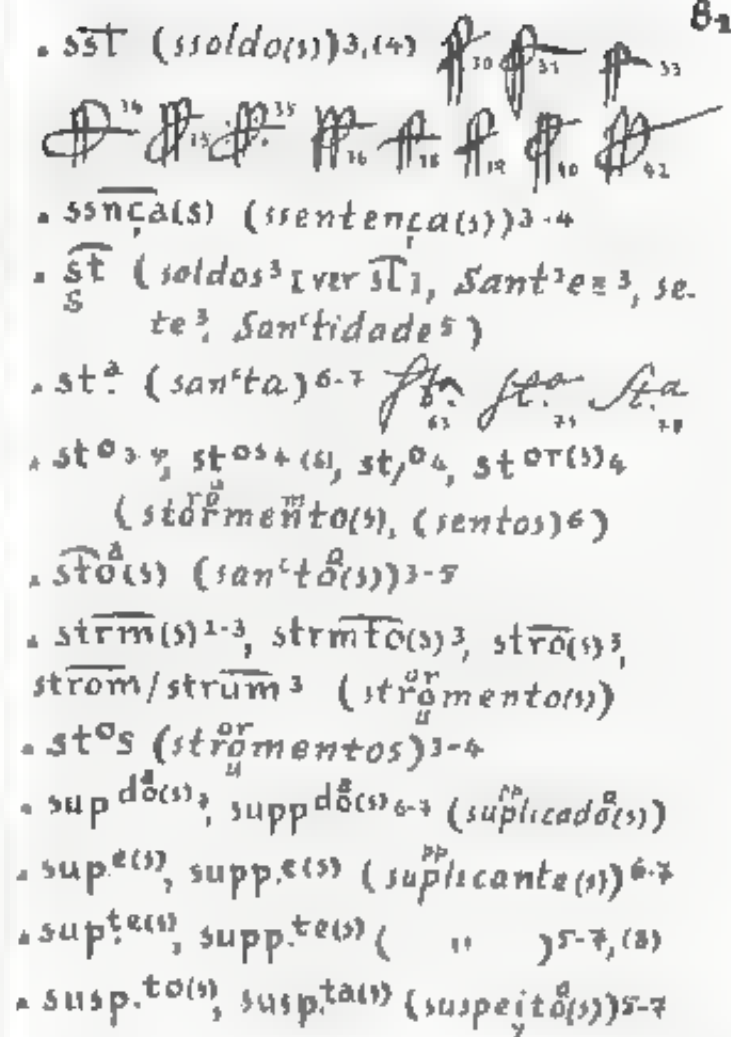 81
. sst (ssoldo(s))3,(4) 30 31 33
34 35 35 36 38 39 40 42
. ssnça(s) (ssentença(s))3-4
. st (soldos³ [ver st], Sant'e= ³, se-
S
te³, Sanctidade⁵)
. st.ª (sancta)6-7 fta. 63 sta. 75 Sta. 78
. st o 3-4, st os 4-(6), st/o 4, st or(s) 4
(stormento(s), (sentos)6)
. stoa(s) (sanctoa(s))3-5
. strm(s)1-3, strmto(s)3, stro(s)3,
strom/strum 3 (stromento(s))
. stos (stromentos)3-4
. sup doa(s)7, supp doa(s)6-7 (suplicadoa(s))
. sup.e(s), supp.e(s) (suplicante(s))6-7
. sup.te(s), supp.te(s) ( " )5-7,(8)
. susp.to(s), susp.ta(s) (suspeitoa(s))5-7